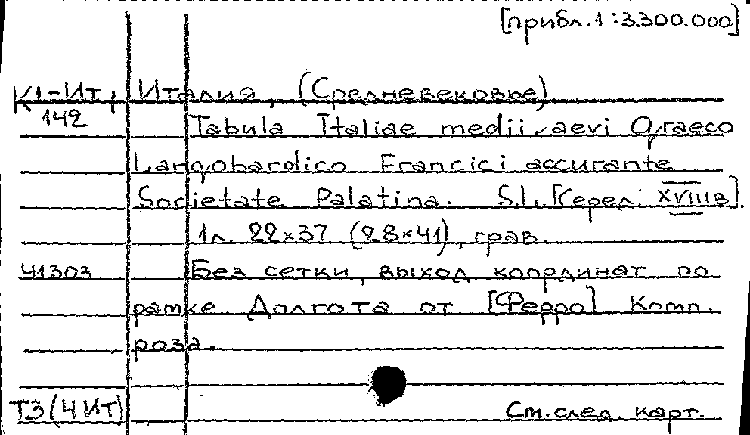 [прибл. 1:3.300.000]
К1-Ит, Италия, (Средневековье)
142 Tabula Italiae medii aevi Graeco
Langobardico Francici accurante
Societate Palatina. S.l, [серед. XVIIIв].
1л. 22×37 (28×41), грав.
41303 Без сетки, выход координат по
рамке. Долгота от [Ферро] Комп.
роза.
ТЗ(4ИТ) См. след. карт.